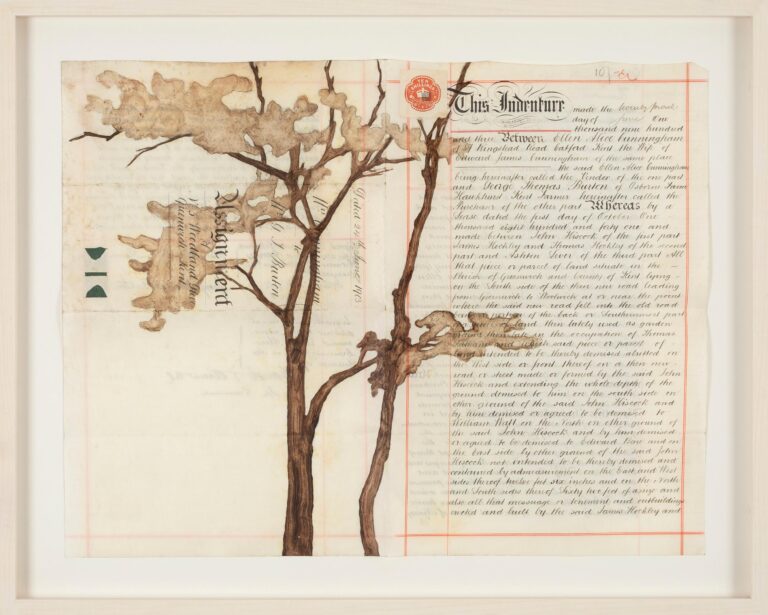 TEN SHILLINGS
10
This Indenture made the twenty
day of June One
thousand nine hundred
and three Between Ellen Alice Cunningham
of Ringstead Road Catford Kent the Wife of
Edward James Cunningham of the same place
the said Ellen Alice Cunningham
being hereinafter called the Vendor of the one part
and George Thomas Burton of Osborn Farm
Hawkhurst Kent Farmer hereinafter called the
Purchaser of the other part Whereas by a
Lease dated the first day of October One
thousand eight hundred and forty one and
made between John Hiscock of the first part
James Hockley and Thomas Hockley of the second
part and Ashton of the third part All
that piece or parcel of land situate in the
Parish of Greenwich and County of Kent lying
on the South side of the then new road leading
from Greenwich to Woolwich at or near the point
where the said new road fell into the old road
part of the back or Southernmost part
land then lately used as garden
in the occupation of Thomas
which said piece or parcel of
land intended to be thereby demised abutted on
the West side or front thereof on a then new
road or street made or formed by the said John
Hiscock and extending the whole depth of the
ground demised to him on the south side on
other ground of the said John Hiscock and
by him demised or agreed to be demised to
William on the North on other ground of
the said John Hiscock and by him demised
or agreed to be demised to Edward and on
the East side by other ground of the said John
Hiscock not intended to be thereby demised and
contained by admeasurement on the East and West
sides thereof twelve feet six inches and on the North
and South sides thereof Sixty two feet of assize and
also all that messuage or tenement and outbuildings
erected and built by the said James Hockley and
Dated 24th June 1903
Cunningham
to
G T Burton
Assignment
Woodland Place
Greenwich Kent